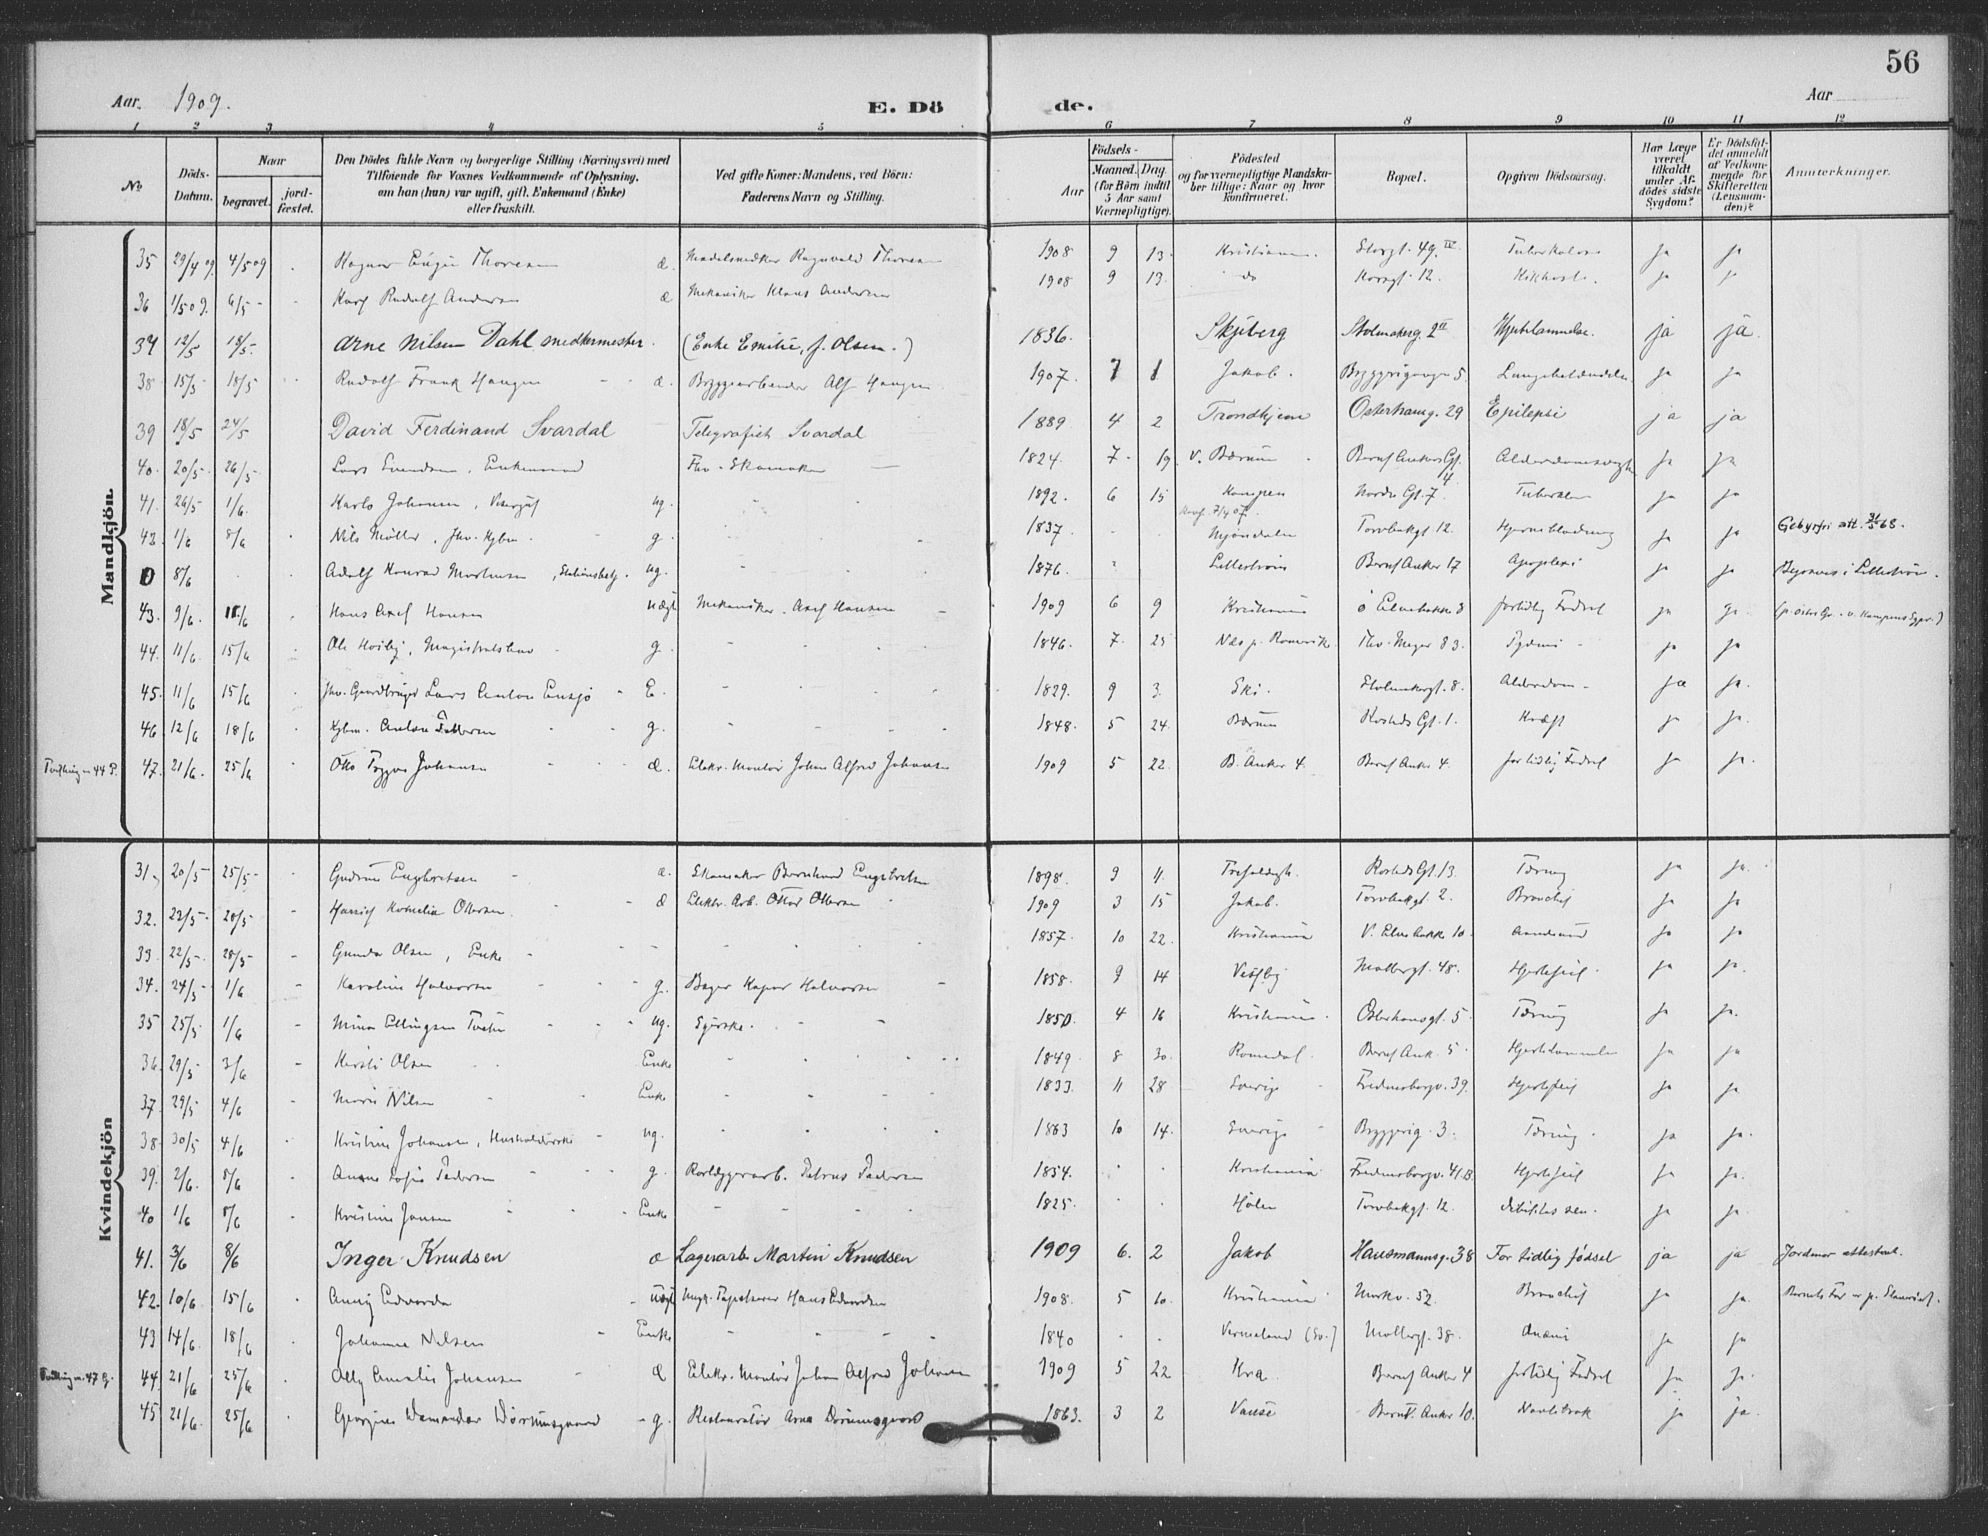 56
Aar. 1909. E. Dö de. Aar
1 2 3 4 5 6 7 8 9 10 11 12
No Döds-Datum. Naar begravet. jord-fæstet. Den Dödes fulde Navn og borgerlige Stilling (Næringsvei) med Tilföiende for Voxnes Vedkommende af Oplysning, om han (hun) var ugift, gift, Enkemand (Enke) eller fraskilt. Ved gifte Koner: Mandens, ved Börn: Faderens Navn og Stilling. Födsels- Aar Maaned. Dag. (for Börn indtil 5 Aar samt Værnepligtige). Födested og for værnepligtige Mandskaber tillige: Naar og hvor konfirmeret. Bopæl. Opgiven Dödsaarsag. Har Læge været tilkaldt under Afdödes sidste Sygdom? Er Dödsfaldet anmeldt af Vedkommende for Skifteretten (Lensmanden)? Anmærkninger.
Mandkjön.
35 29/4 09 4/5 09 Ragnar Thoresen æ. Ragnvald Thoresen 1908 9 13 Kristiania Storgt. 49 IV Tuberkulose ja ja
36 1/5 09. 6/5 Karl Rudolf Andersen æ Mekaniker Klaus Andersen 1908 9 13. do Korsgt. 12. Kikhoste ja ja
37 12/5 18/5. Arne Nilsen Dahl, snedkermester. (Enke Emilie, f. Olsen.) 1836. Skjeberg Stolmakerg. 2 II Hjertelammelse. ja ja.
38 15/5 18/5 Rudolf Frank Haugen æ. Bryggearbeider Alf Haugen 1907. 7 1 Jakob. Bryggerigangen 5. Lungebetændelse ja ja
39 18/5 24/5 David Ferdinand Svardal Telegrafist Svardal 1889 4 2 Trondhjem Osterhausg. 29 Epilepsi ja ja
40. 20/5 26/5 Lars Svendsen, Enkemand Fhv. Skomaker 1824. 7 19 V. Bærum Bernt Ankers Gt. 4 Alderdomssvaghed ja ja
41. 26/5 1/6. Karlo Johansen, ug. 1892. 6 15 Kampen Konf. 7/4 07. Nordre Gt. 7. Tuberkulose ja ja
42. 1/6 8/6 Nils Møller, fhv. Kjbm. g. 1837. Mjøndalen Torvbakgt. 12. Hjerneblødning ja ja Gebyrfri att. 3/5 68.
0 8/6 Adolf Konrad Mortensen, Stationsbetj. ug. 1876. Lillestrøm Bernt Anker 17 Apoplexi ja ja Begraves i Lillestrøm.
43. 9/6. 11/6 Hans Axel Hansen uægt Mekaniker Axel Hansen 1909 6 9 Kristiania ø Elvebakke 8 for tidlig Fødsel ja ja.
44. 11/6 15/6 Ole Høiby, g. 1846. 7. 25 Næs p. Romerike Thv. Meyer 83. ja ja
45. 11/6 15/6 fhv. Gaardbruger Lars Anton Ensjø E. 1829. 9 3. Ski. Stolmakergt. 8. Alderdom ja ja.
46. 12/6 18/6 Kjbm. Anton Pettersen g. 1848. 5 24. Bærum Rosteds Gt. 1. Kræft ja ja.
Tvilling m 44 P. 47. 21/6. 25/6 Otto Trygve Johansen æ. Elektr. Montør Johan Alfred Johansen 1909 5 22. B. Anker 4. Bernt Anker 4. for tidlig Fødsel ja ja.
Kvindekjön
31. 20/5 25/5 Gudrun Engbretsen æ. Skomaker Bernhard Engebretsen 1898. 9 11. Trefoldigh. Rosteds Gt. 13. Tæring ja ja.
32. 22/5 28/5 Kornelia Ottersen æ Elektr. Arb. Ottar Ottersen 1909 3 15 Jakob. Torvbakgt. 2. Bronchit ja ja
33. 22/5 28/5 Gunda Olsen, Enke 1857. 10 22. Kristiania V. Elvebakke 10 ja ja
34. 24/5 1/6 Karoline Halvorsen g. Bager Kaspar Halvorsen 1858. 9 14 Vestby Møllergt. 48. Hjertefeil. ja ja.
35 25/5 1/6 Mina Ellingsen ug. Syerske. 1850. 4 16 Kristiania. Osterhausgt. 5 Tæring ja ja.
36. 29/5 3/6 Kersti Olsen Enke 1849. 8 30. Romedal. Bernt Ank. 5 Hjertelammelse ja ja
37. 29/5 4/6 Marie Nilsen Enke 1833. 11 28 Sverige Fredensborgv. 39. Hjertefeil ja ja
38. 30/5 4/6 Kristine Johansen, Husholderske ug. 1863 10 14. Sverige Bryggerig. 3. Tæring ja ja.
39. 2/6. 8/6 Anna Sofie Pedersen g. Rørlæggerarb. Petrus Pedersen 1854. Kristiania Fredensborgv. 41 B. Hjertefeil ja ja.
40 1/6 8/6 Kristine Jansen Enke 1825. Hølen Torvbakgt. 12. debilitas sen. ja ja.
41. 3/6 8/6 Inger Knudsen æ Lagerarb. Martin Knudsen 1909 6. 2 Jakob Hausmannsg. 38 For tidlig fødsel ja ja Jordmor attesteret.
42. 10/6 15/6 Anny Edvarda uægt Ungk. Tapetserer Hans Edvardsen 1908. 5 10. Kristiania Markv. 52. Bronchit ja ja.
43 14/6 18/6 Johanne Nilsen Enke 1840 Vermeland (Sv.) Møllergt. 38. Anæmi ja ja
Tvilling m. 47 G. 44. 21/6 25/6 Amalie Johansen æ Elektr. Montør Johan Alfred Johansen 1909 5 22 Kra Bernt Anker 4 for tidlig Fødsel ja ja.
45. 21/6. 25/6 g. Restauratør Arne 1863. 3 2 Vanse Bernt. Anker 10. ja ja.